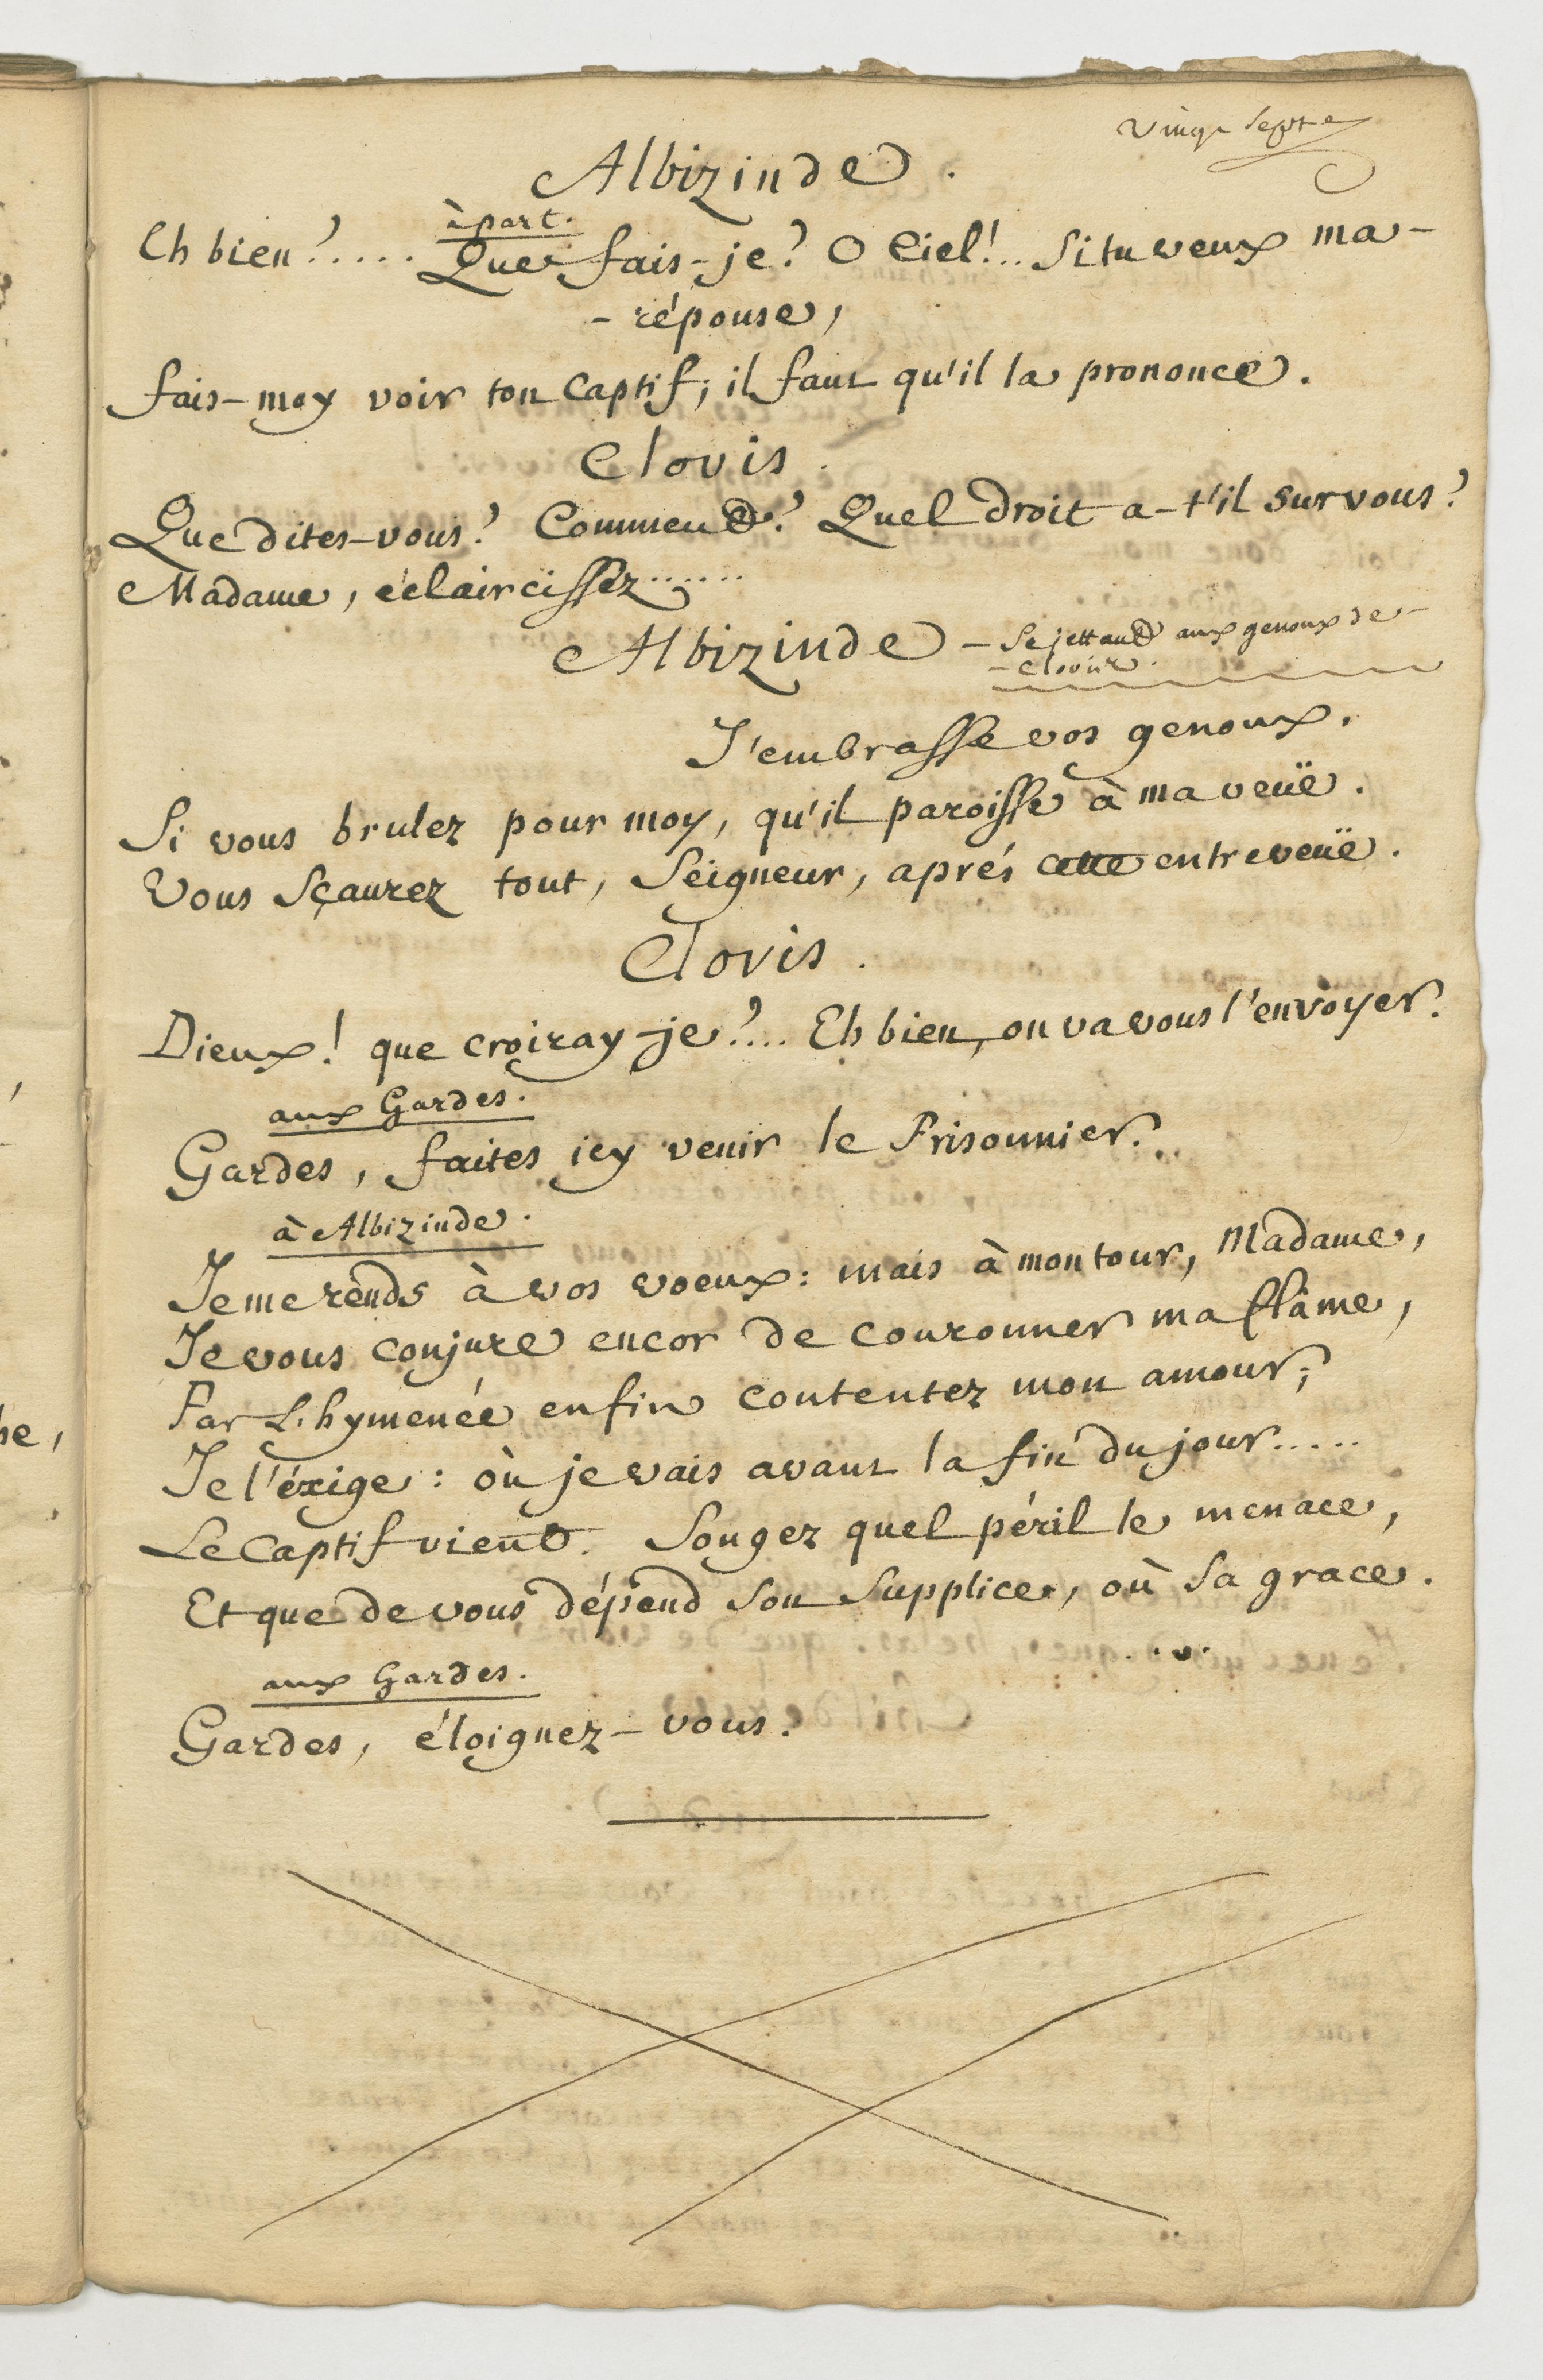 vingt Septe
Albizinde.
à part.
Eh bien?..... Que fais-je? O Ciel!.. Si tu veux ma-
-réponse,
fais-moy voir ton Captif; il faut qu'il la prononce.
Clovis.
Que dites-vous? Comment? Quel droit a-t'il sur vous?
Madame, éclaircissez......
Albizinde - Se jettant aux genoux de-
-Clovis.
J'embrasse vos genoux.
Si vous brulez pour moy, qu'il paroisse à ma veüe.
Vous Sçaurez tout, Seigneur, aprés cette entreveüe.
Clovis.
Dieux! que croiray-je?... Eh bien, on va vous l'envoyer.
aux Gardes.
Gardes, faites icy venir le Prisonnier.
à Albizinde.
Je me rends à vos voeux: mais à mon tour, Madame,
Je vous conjure encor de couronner ma flâme,
Par L'hymenée enfin contentez mon amour;
Je l'éxige: où je vais avant la fin du jour.....
Le Captif vient. Songez quel péril le menace,
Et que de vous dépend Son Supplice, où Sa grace.
aux Gardes.
Gardes, éloignez-vous.